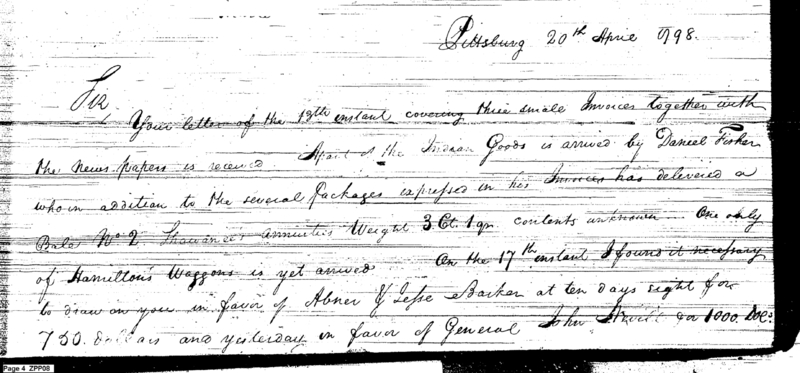 Pittsburg 20th April 1798.
Sir
Your letter of the 13th instant covering three small Invoices together with
the news papers is received Apart of the Indian Goods is arrived by Daniel Fisher
who in addition to the several Packages expressed in his Invoices has delivered a
Bale No 2. Shawanees Annuities Weight 3 Ct. 1 qr. contents unknown One only
of Hamiltons Waggons is yet arrived On the 17th instant I found it necessary
to draw on you in favor of Abner & Jesse Barker at ten days sight for
750. dollars and yesterday in favor of General John for 1000. Dols.
Page 4 ZPP08